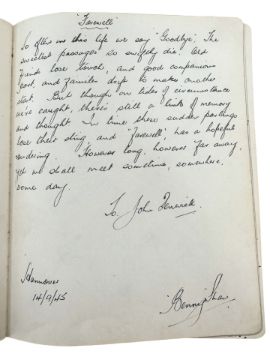 'Farewell'
So often in this life we say 'Goodbye'. The
sweetest passages so swiftly die! Old
friends lose touch, and good companions
part, and families drift to makes another
start. But though on tides of circumstance
we're caught, there's still a links of memory
and thought. In time these sudden partings
lose their sting and 'Farewell', has a hopeful
rendering. However long, however far away,
yet we shall meet sometime, somewhere,
some day.
To John Fenwick.
Hannover
14/9/45
Benny Shaw